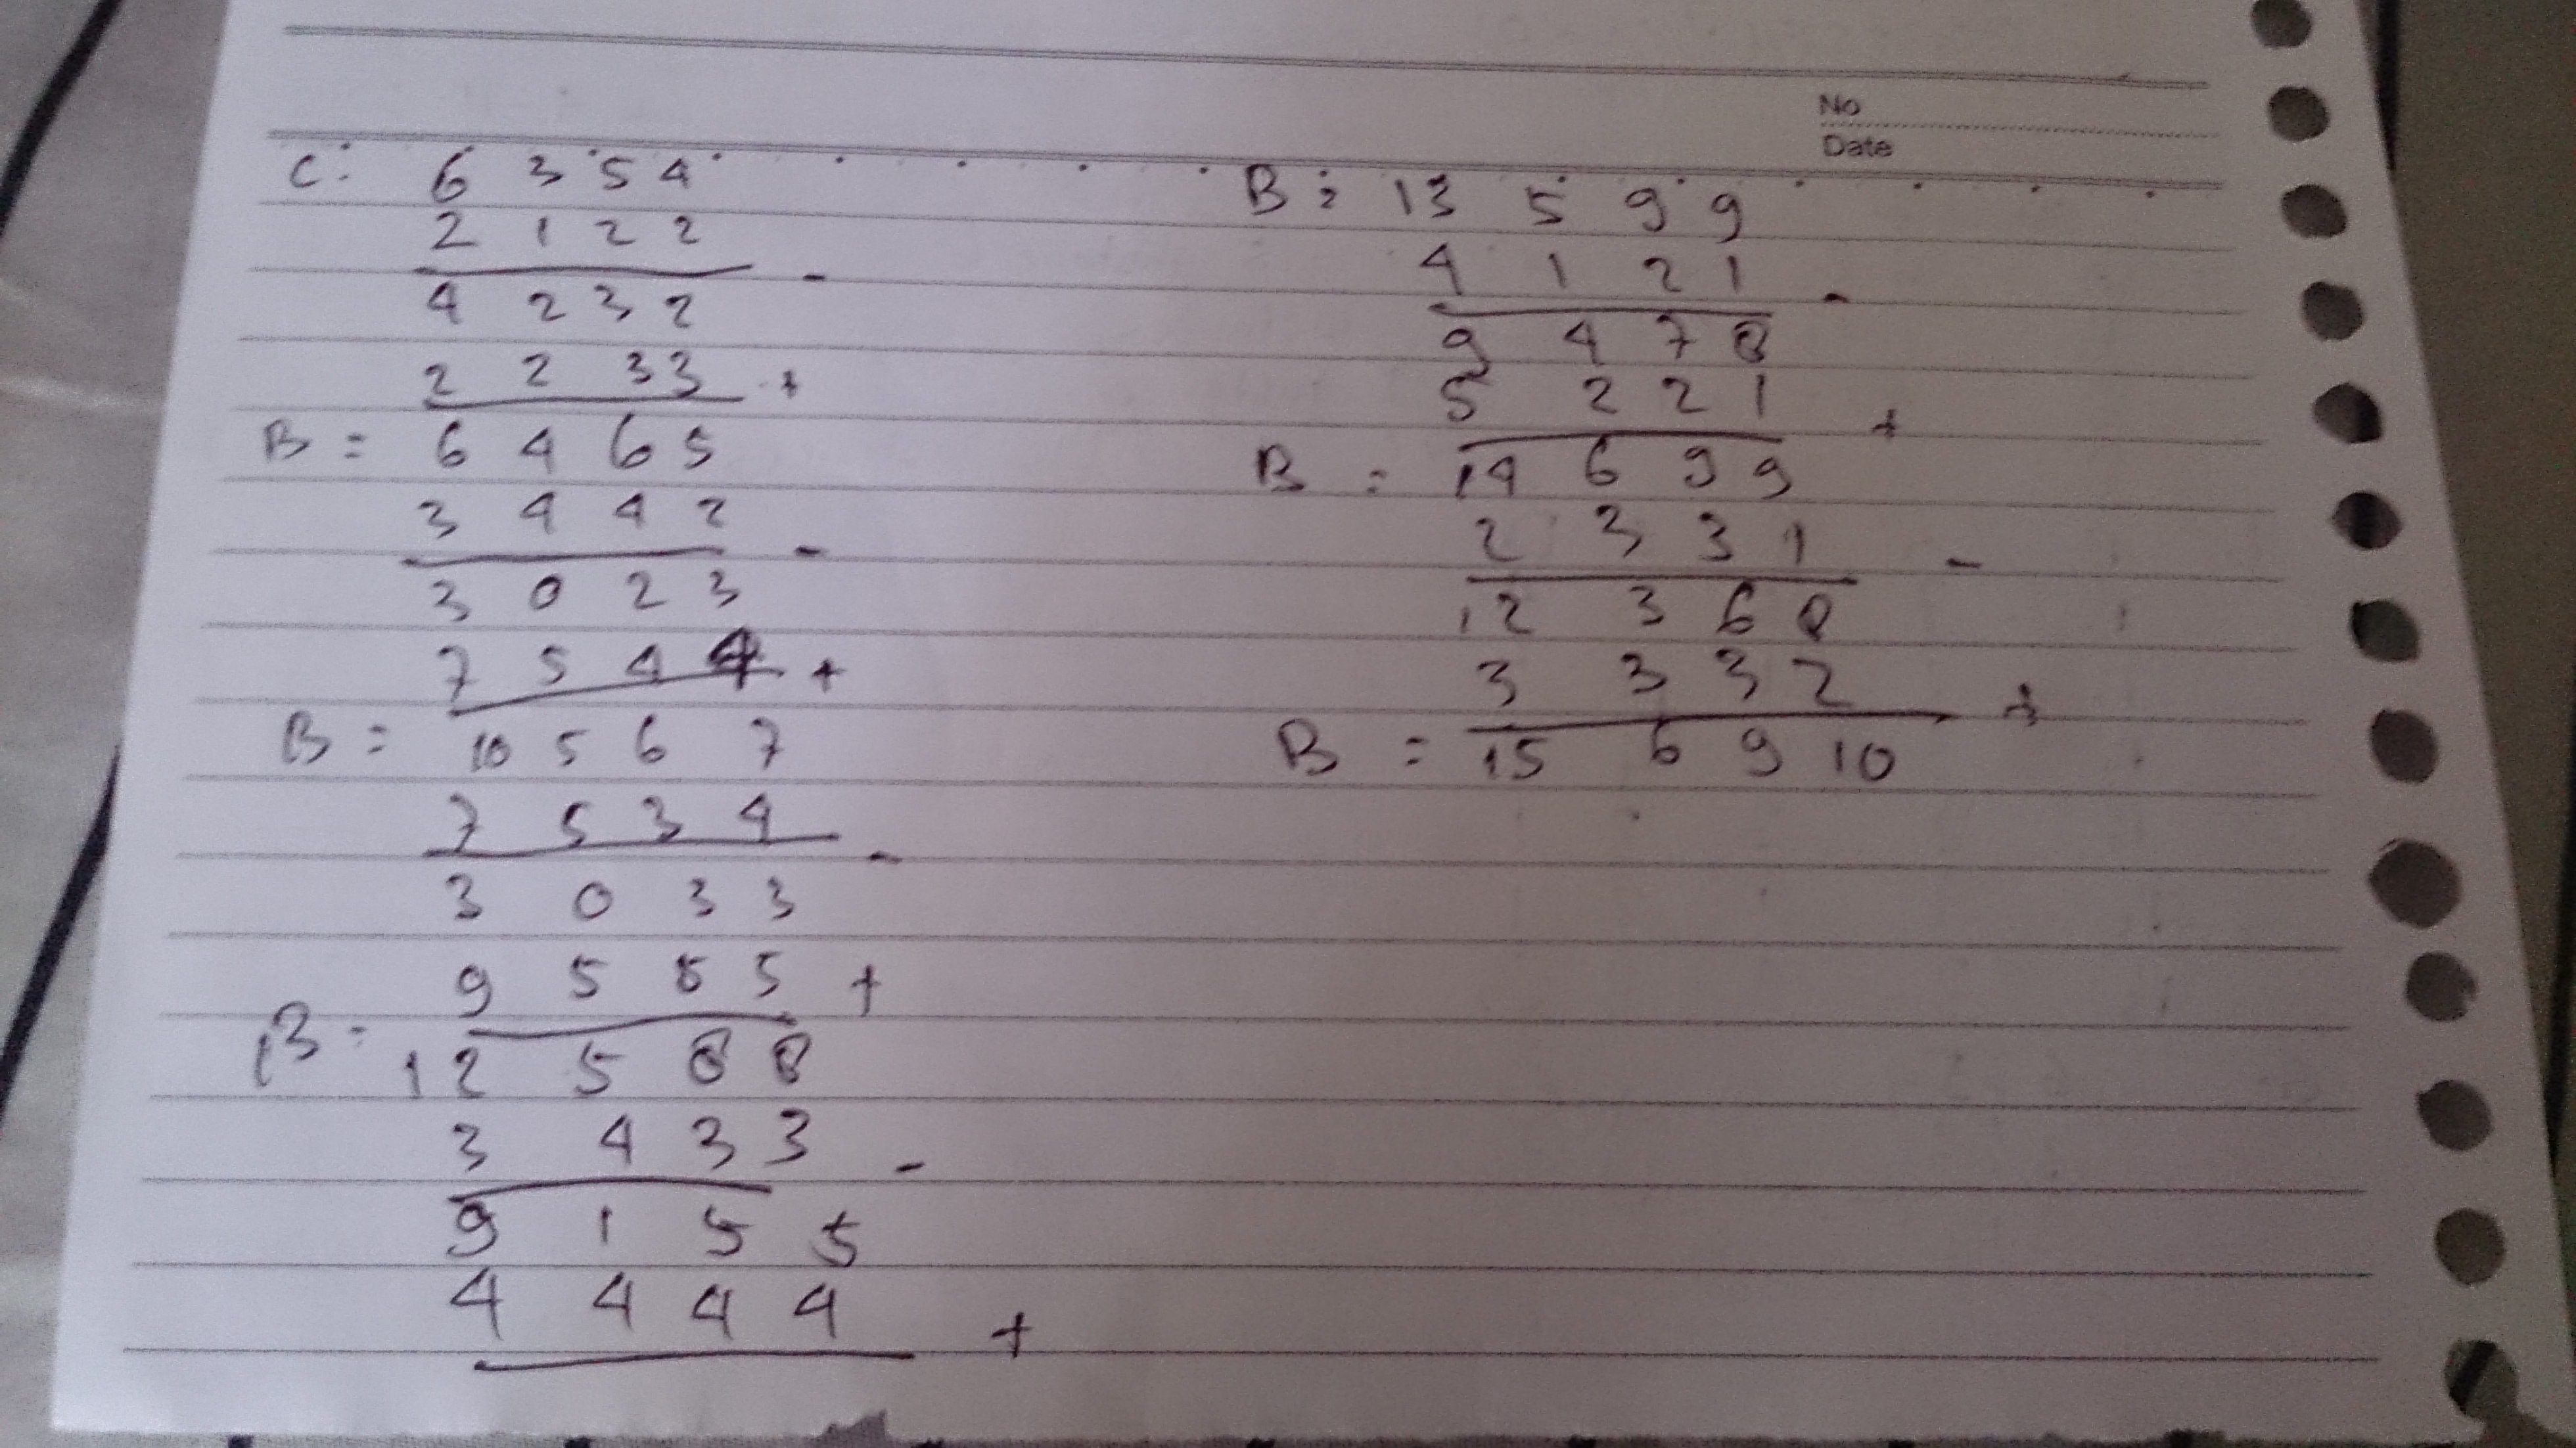 No
Date
C: 6 3 5 4
2 1 2 2
-
4 2 3 2
2 2 3 3 +
B = 6 4 6 5
3 4 4 2
-
3 0 2 3
7 5 4 4 +
B = 10 5 6 7
7 5 3 4
-
3 0 3 3
9 5 5 5 +
B = 12 5 8 8
3 4 3 3 -
9 1 5 5
4 4 4 4 +
B : 13 5 9 9
4 1 2 1 -
9 4 7 8
5 2 2 1 +
B = 14 6 9 9
2 3 3 1 -
12 3 6 8
3 3 3 2 +
B = 15 6 9 10